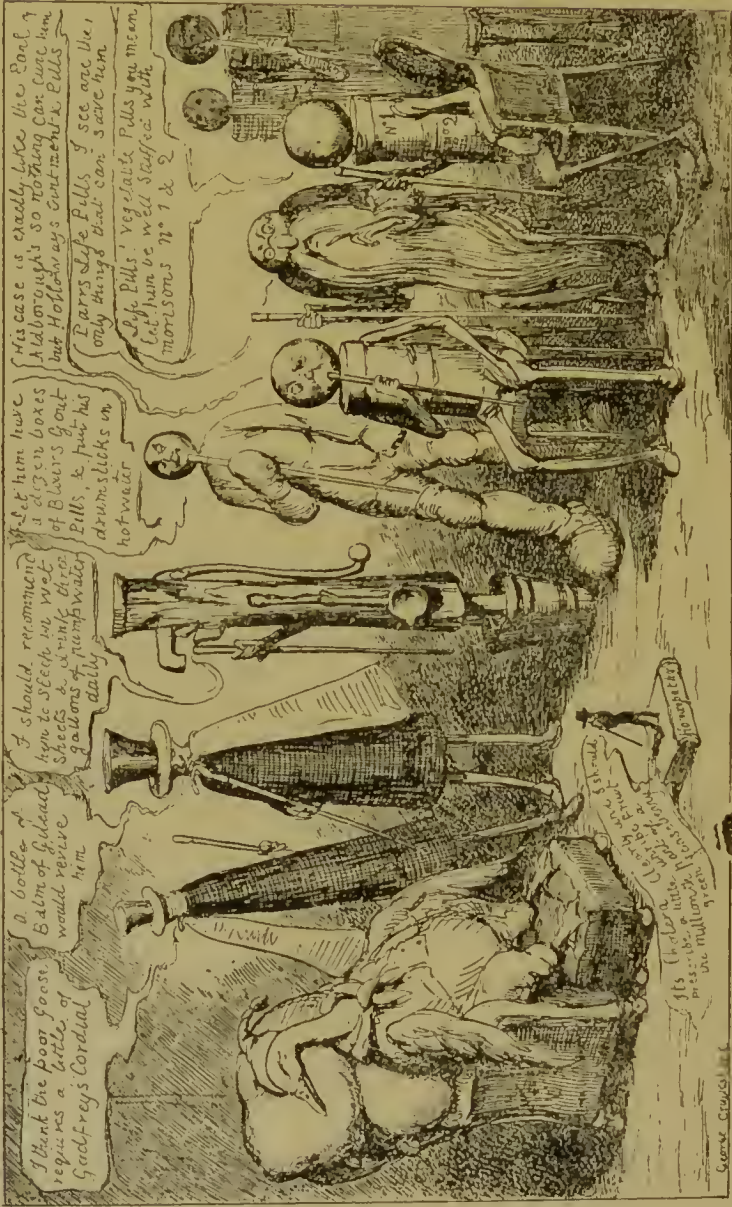 I think the poor Goose
requires a bottle of
Godfreys Cordial
A bottle of
Balm of Gilead
would revive
him
I should recommend
him to sleep in wet
sheets & drink three
gallons of pumpwater
daily
Let him have
a dozen boxes
of Blairs Gout
Pills, & put his
drumsticks in
hot water
His case is exactly like the Earl of
Aldborough's so nothing can cure him
but Holloways Ointment & Pills
Parrs Life Pills I see are the
only things that can save him
Life Pills! Vegetable Pills you mean
let him be well stuffed with
morisons no 1 & 2
No 1
no 2
Its Cholera
prescribe a
millionth
green
Homeopathy
George Cruikshank